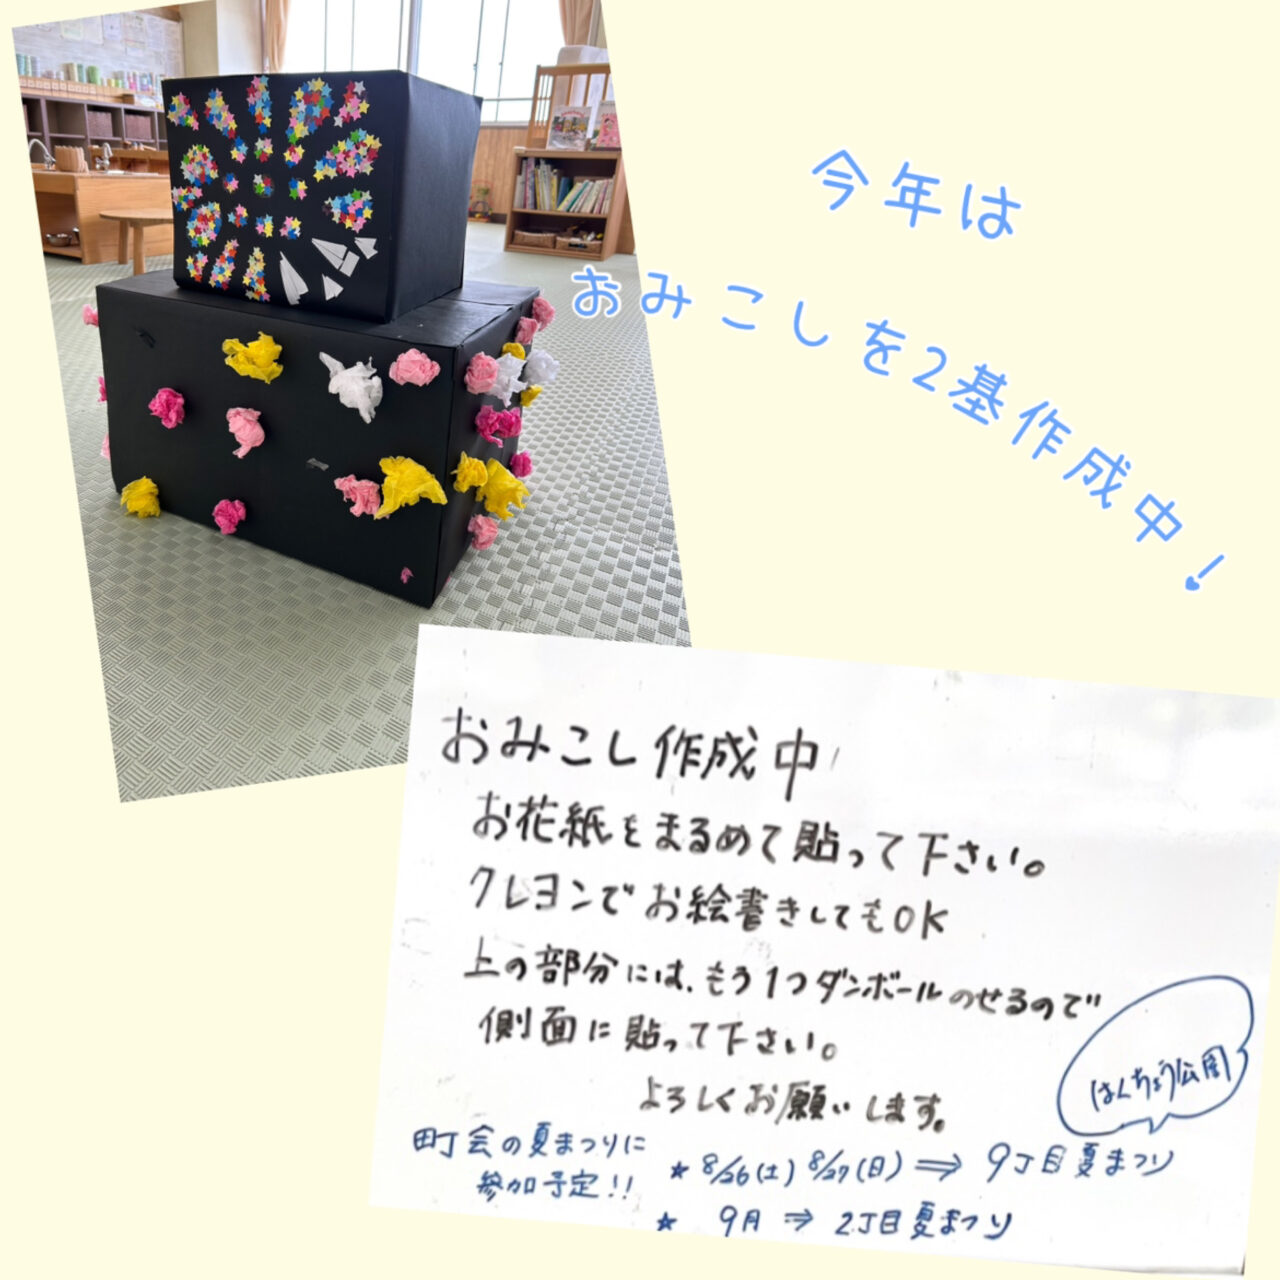 今年は
おみこしを2基作成中!
おみこし作成中
お花紙をまるめて貼って下さい。
クレヨンでお絵書きしてもOK
上の部分には、もう1つダンボールのせるので
側面に貼って下さい。
よろしくお願いします。
はくちょう公園
町会の夏まつりに
参加予定!!
★ 8/26(土) 8/27(日) ⇒ 9丁目夏まつり
★ 9月 ⇒ 2丁目夏まつり